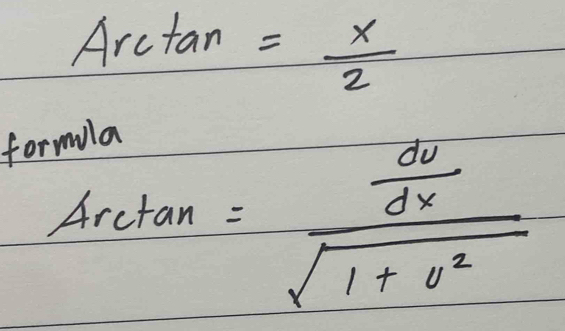 Arctan = x/2
formula
Arctan = (du/dx)/√(1 + u²)